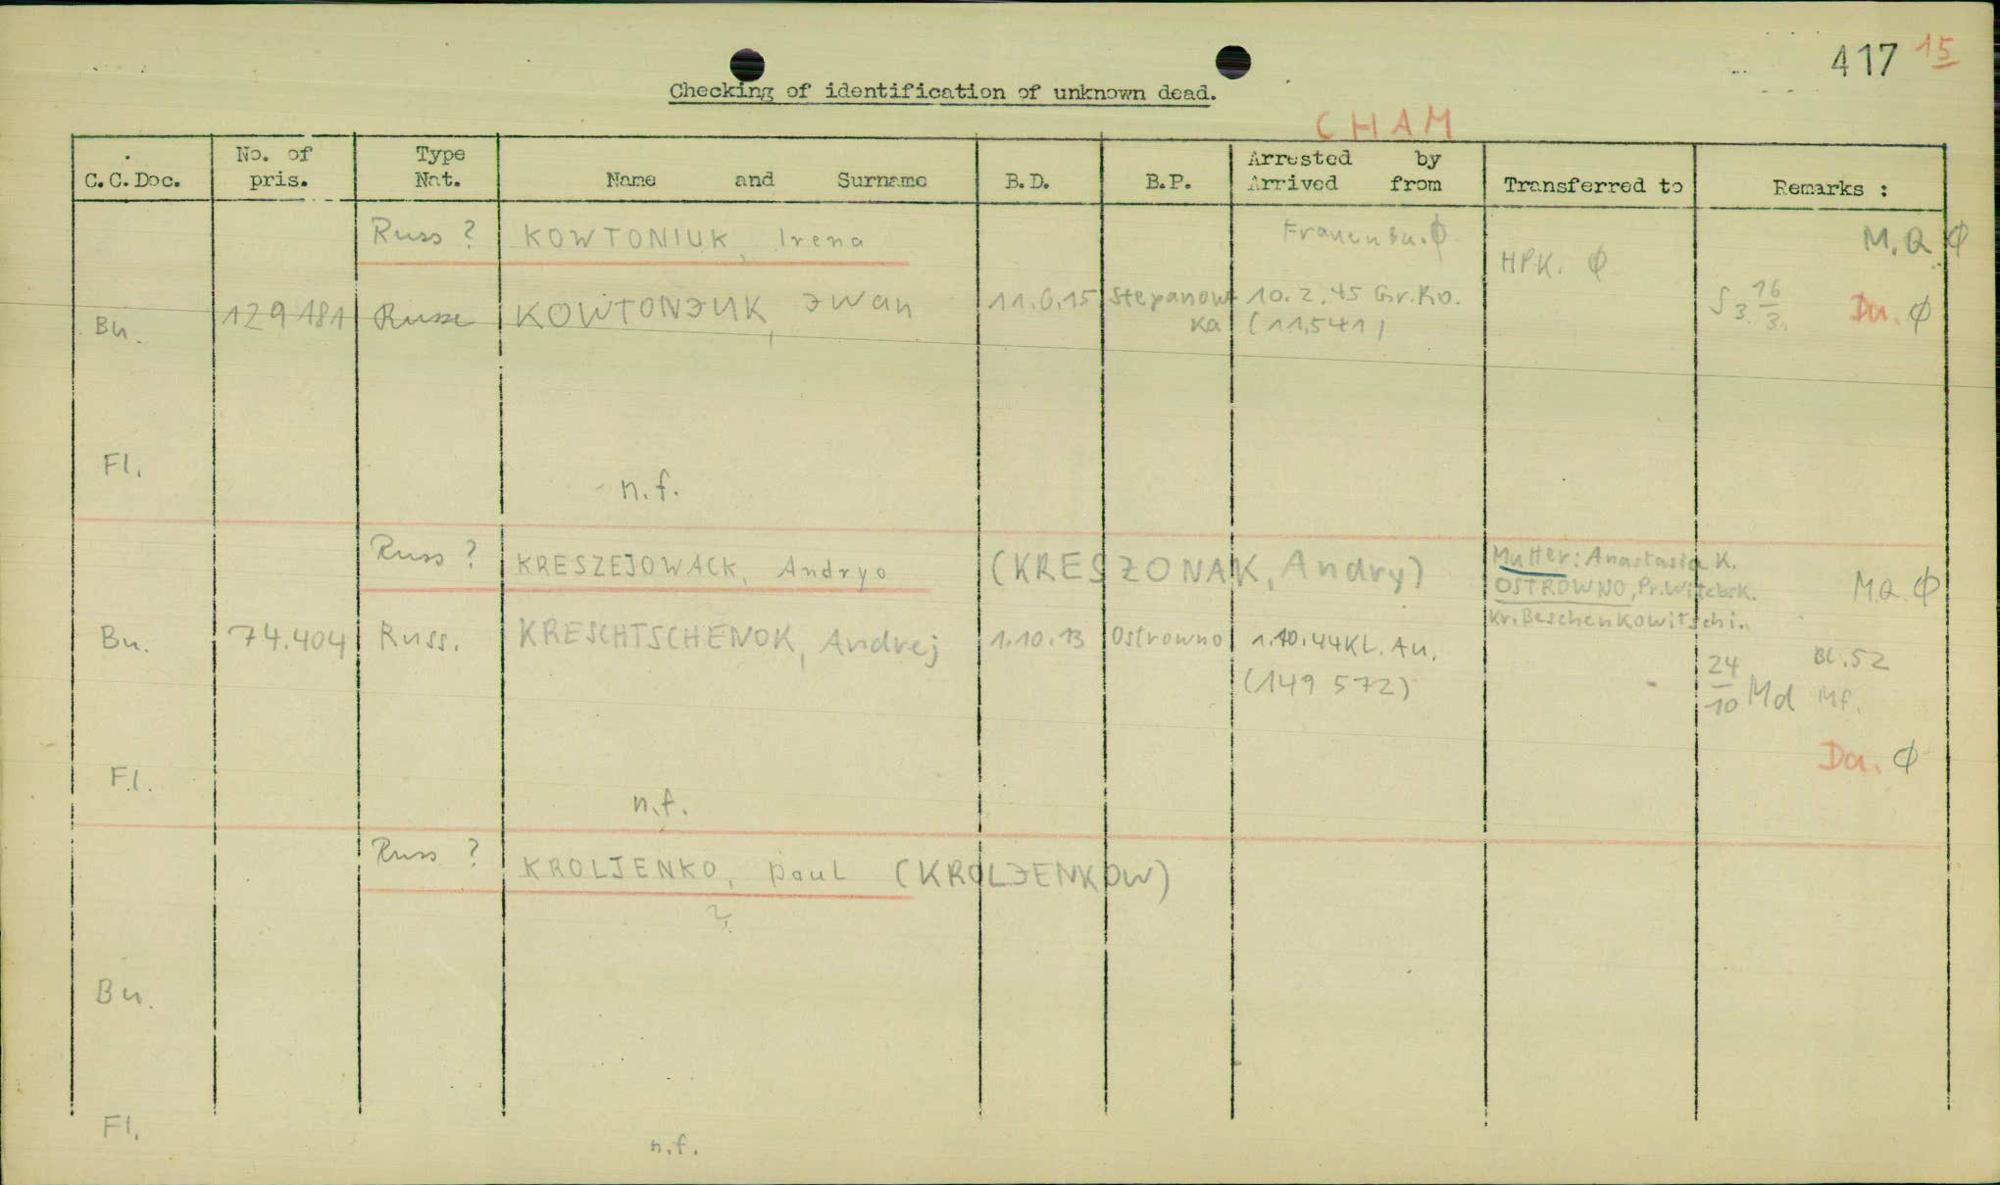 417 15
Checking of identification of unknown dead.
CHAM
C.C.Doc. No. of pris. Type Nat. Name and Surname B.D. B.P. Arrested by Arrived from Transferred to Remarks :
Russ ? KOWTONIUK, Irena Frauen Bu. ϕ HPK. ϕ M.Q ϕ
Bu. 129181 Russe KOWTONJUK, Iwan 11.6.15 Stepanow 10.2.45 Gr.Ro. 16/3. Da. ϕ
ka (11,541)
Fl.
n.f.
Russ ? KRESZEJOWACK, Andryo (KRESZONAK, Andry) Mutter: Anastasia K.
OSTROWNO, Pr.Witebsk. M.Q. ϕ
Kr.Beschenkowitschi.
Bu. 74.404 Russ. KRESCHTSCHENOK, Andrej 1.10.13 Ostrowno 1.10.44 KL. Au. Bl.52
(149 572) 24/10 Md Mf.
Da. ϕ
Fl.
n.f.
Russ ? KROLJENKO, Paul (KROLJENKOW)
?
Bu.
Fl.
n.f.